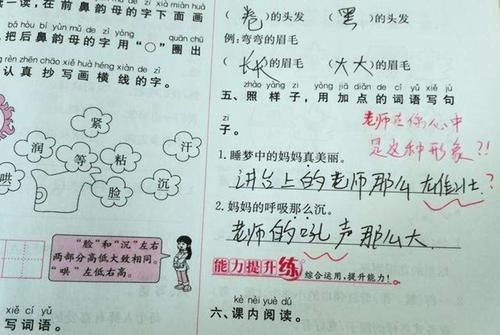 一读，在前鼻韵母的字下面画
bǎ hòu bí yùn mǔ de zì yòng quān chū
，把后鼻韵母的字用“○”圈出
rèn zhēn chāo xiě huà héng xiàn de zì
认真抄写画横线的字。
紧
润
汗
等
粘
哄
脸
沉
“脸”和“沉”左右
两部分高低大致相同。
“哄”左低右高。
xiě cí yǔ
写词语。
（卷）的头发 （黑）的头发
例：弯弯的眉毛
（长长）的眉毛（大大）的眉毛
zhào yàng zi yòng jiā diǎn de cí yǔ xiě jù
五、照样子，用加点的词语写句
zi
子。
老师在你心中
是这种形象?!!
1.睡梦中的妈妈真美丽。
讲台上的老师那么雄壮?
2.妈妈的呼吸那么沉。
老师的吼声那么大。
能力提升练 综合运用，提升能力！
kè nèi yuè dú
六、课内阅读。